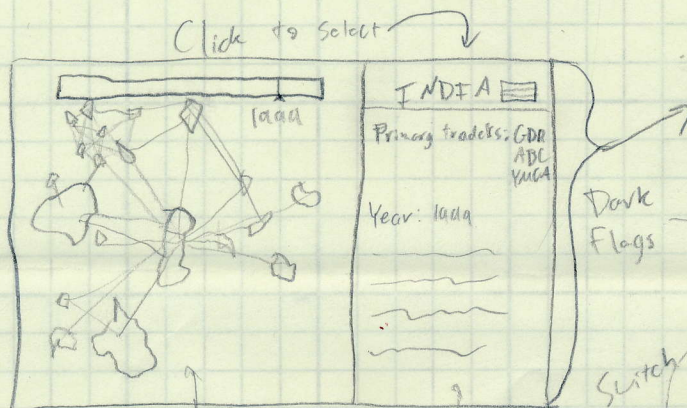 Click to select
1999
INDIA
Primary traders: GDR
ABC
YMCA
Year: 1999
Dark
Flags
Switch